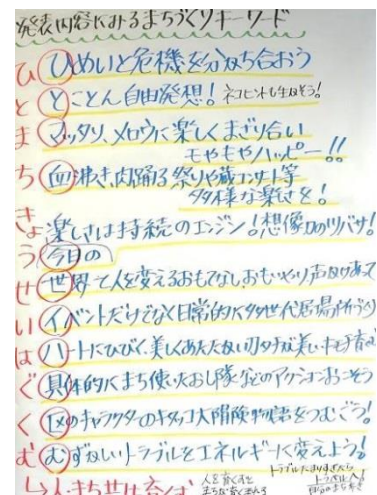 発表内容にみるまちづくりキーワード
ひ ひめいと危機を分かち合おう
と とことん自由発想！ネコヒントも生むぞう！
ま マッタリ、メロウに楽しくまざり合い
モヤモヤハッピー！！
ち 血沸き、肉踊る祭りや蔵コンサート等
多様な楽しさを！
きょ 楽しさは持続のエンジン！想像力のツバサ！
う 今日の
せ 世界で人を変えるおもてなしおもいやり声かけあって
い イベントだけでなく日常的に多世代居場所づくり
は ハートにひびく、美しくあたたかい
ぐ 具体的にまち使いたおし隊などのアクションおこそう
く のキャラクターのキタッコ大冒険物語をつむごう！
む むずかしいトラブルをエネルギーに変えよう！
人・まち せいは育む
人を育くすと